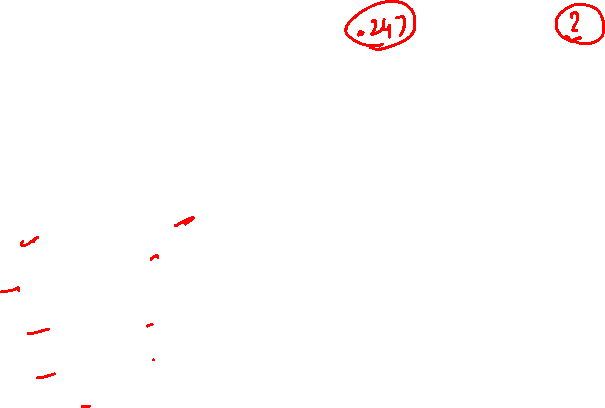 .247 2